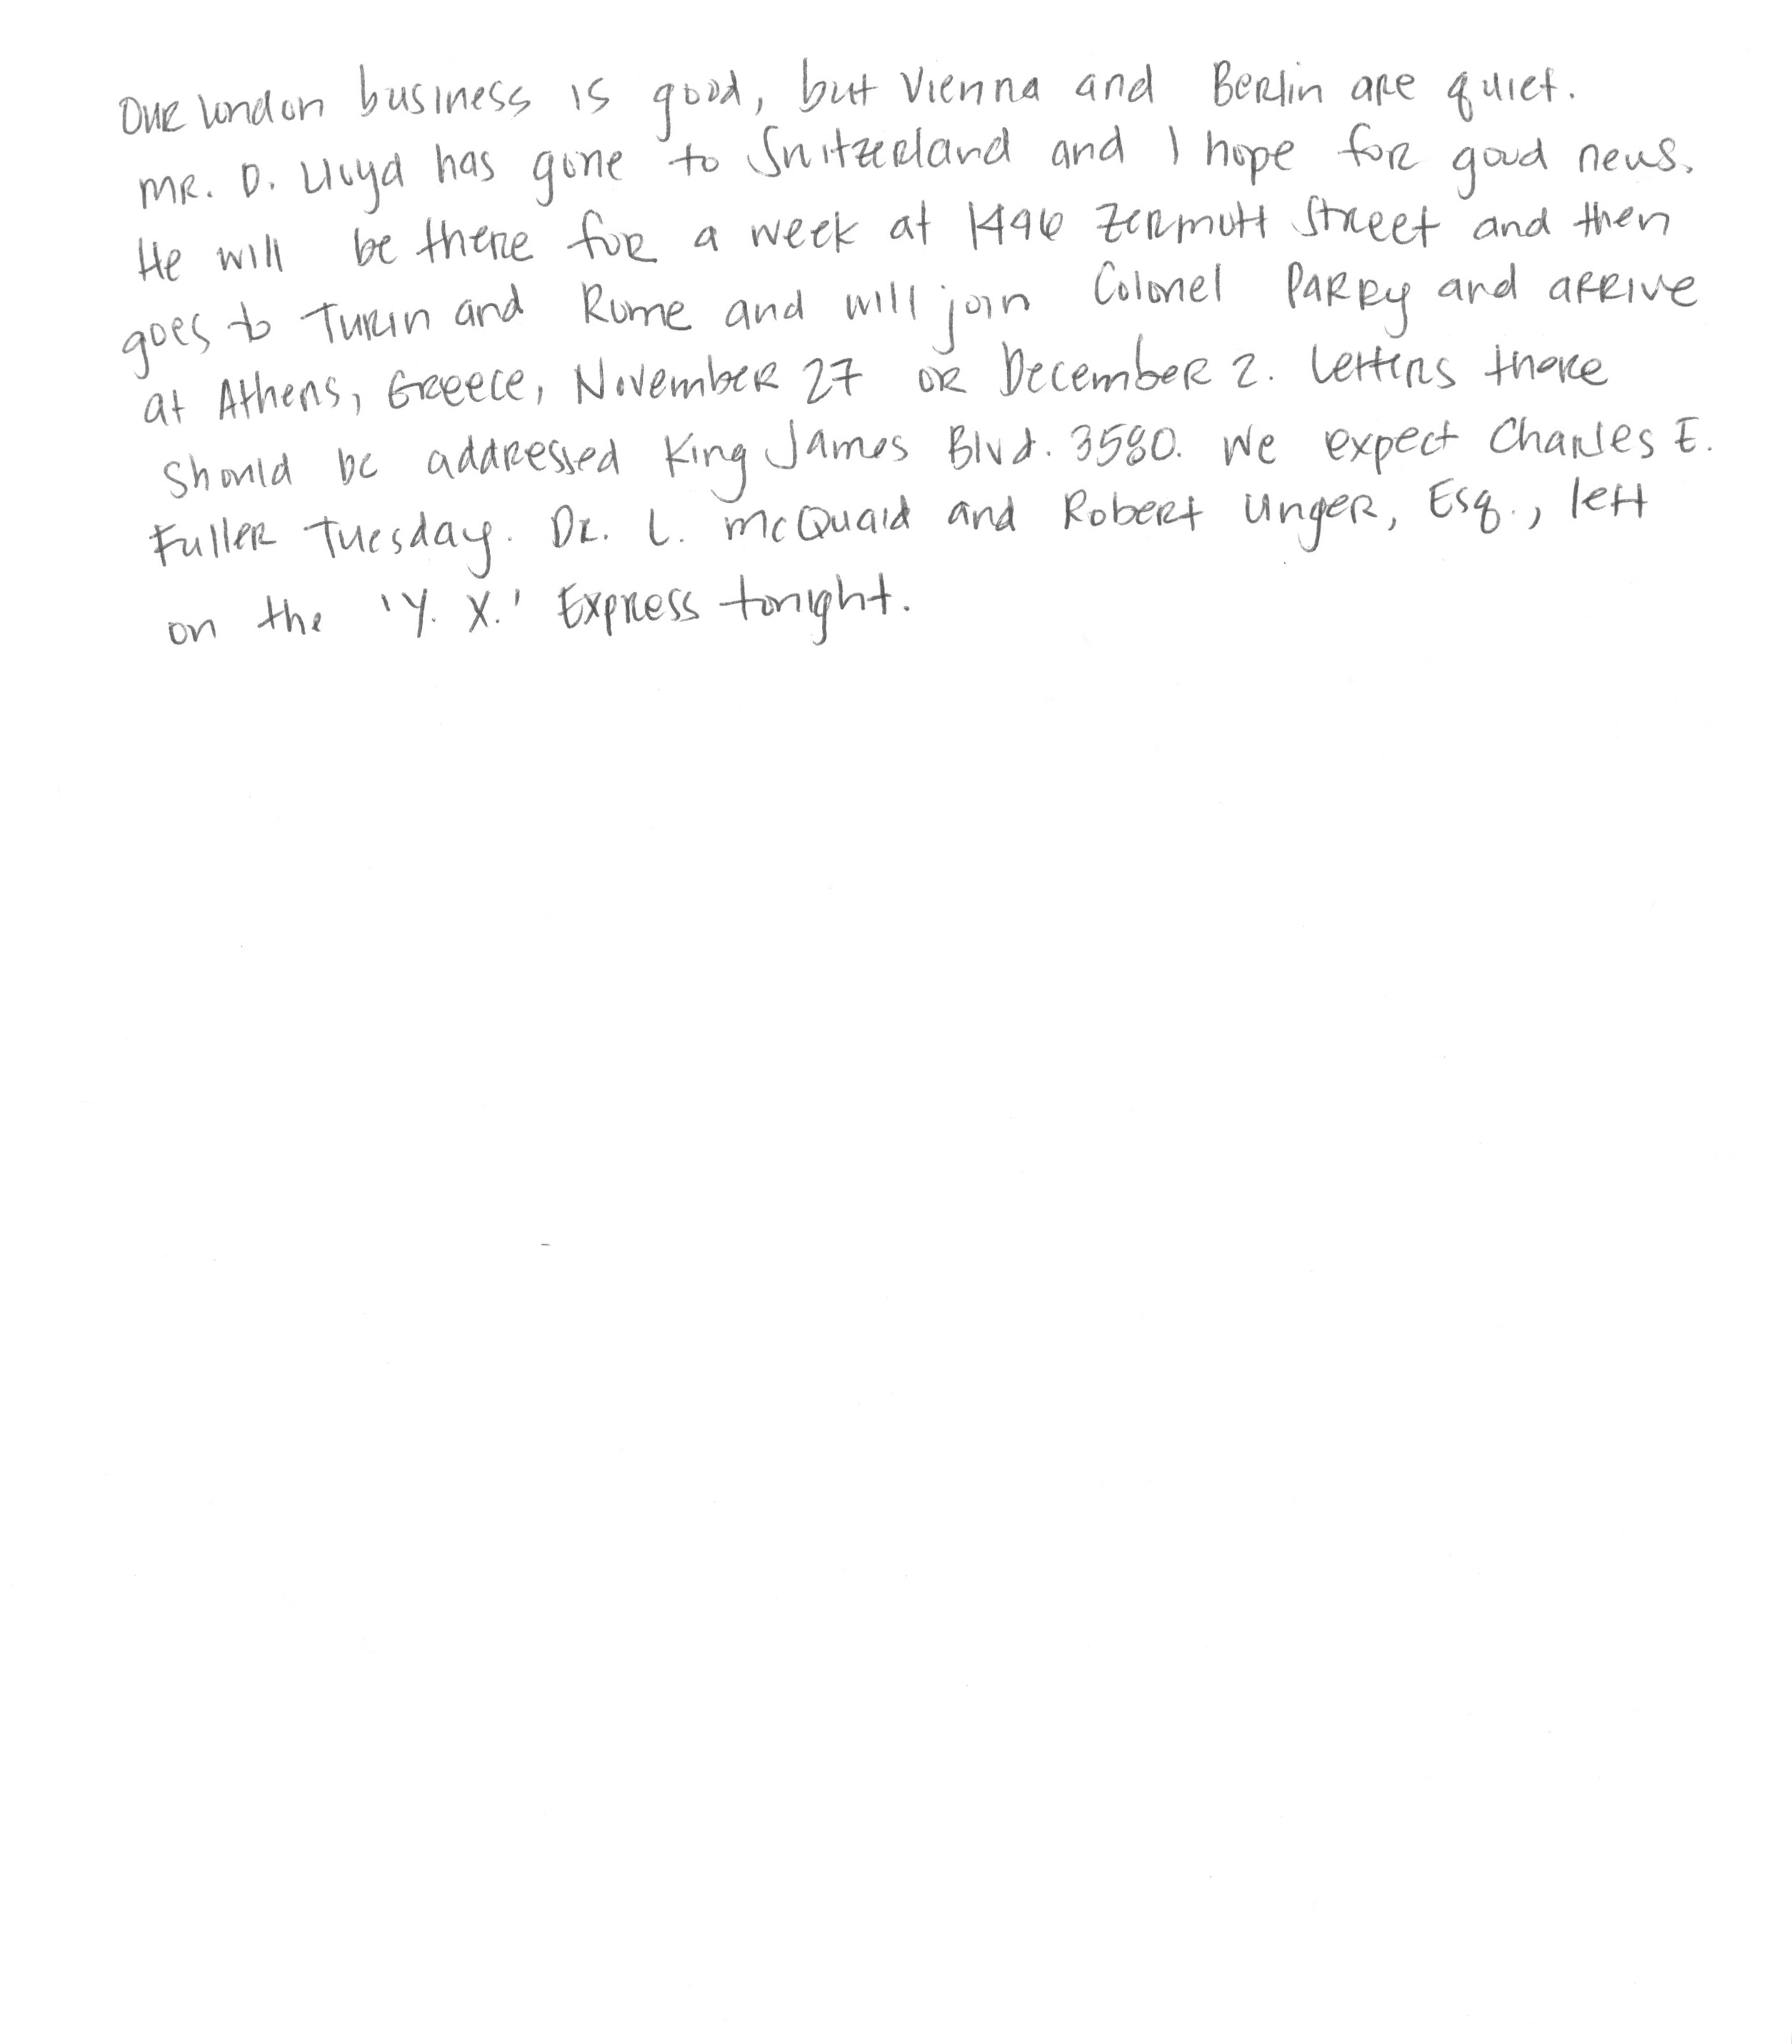 Our London business is good, but Vienna and Berlin are quiet.
Mr. D. Lloyd has gone to Switzerland and I hope for good news.
He will be there for a week at 1496 Zermott Street and then
goes to Turin and Rome and will join Colonel Parry and arrive
at Athens, Greece, November 27 or December 2. Letters there
should be addressed King James Blvd. 3580. We expect Charles E.
Fuller Tuesday. Dr. L. McQuaid and Robert Unger, Esq., left
on the 'Y. X.' Express tonight.